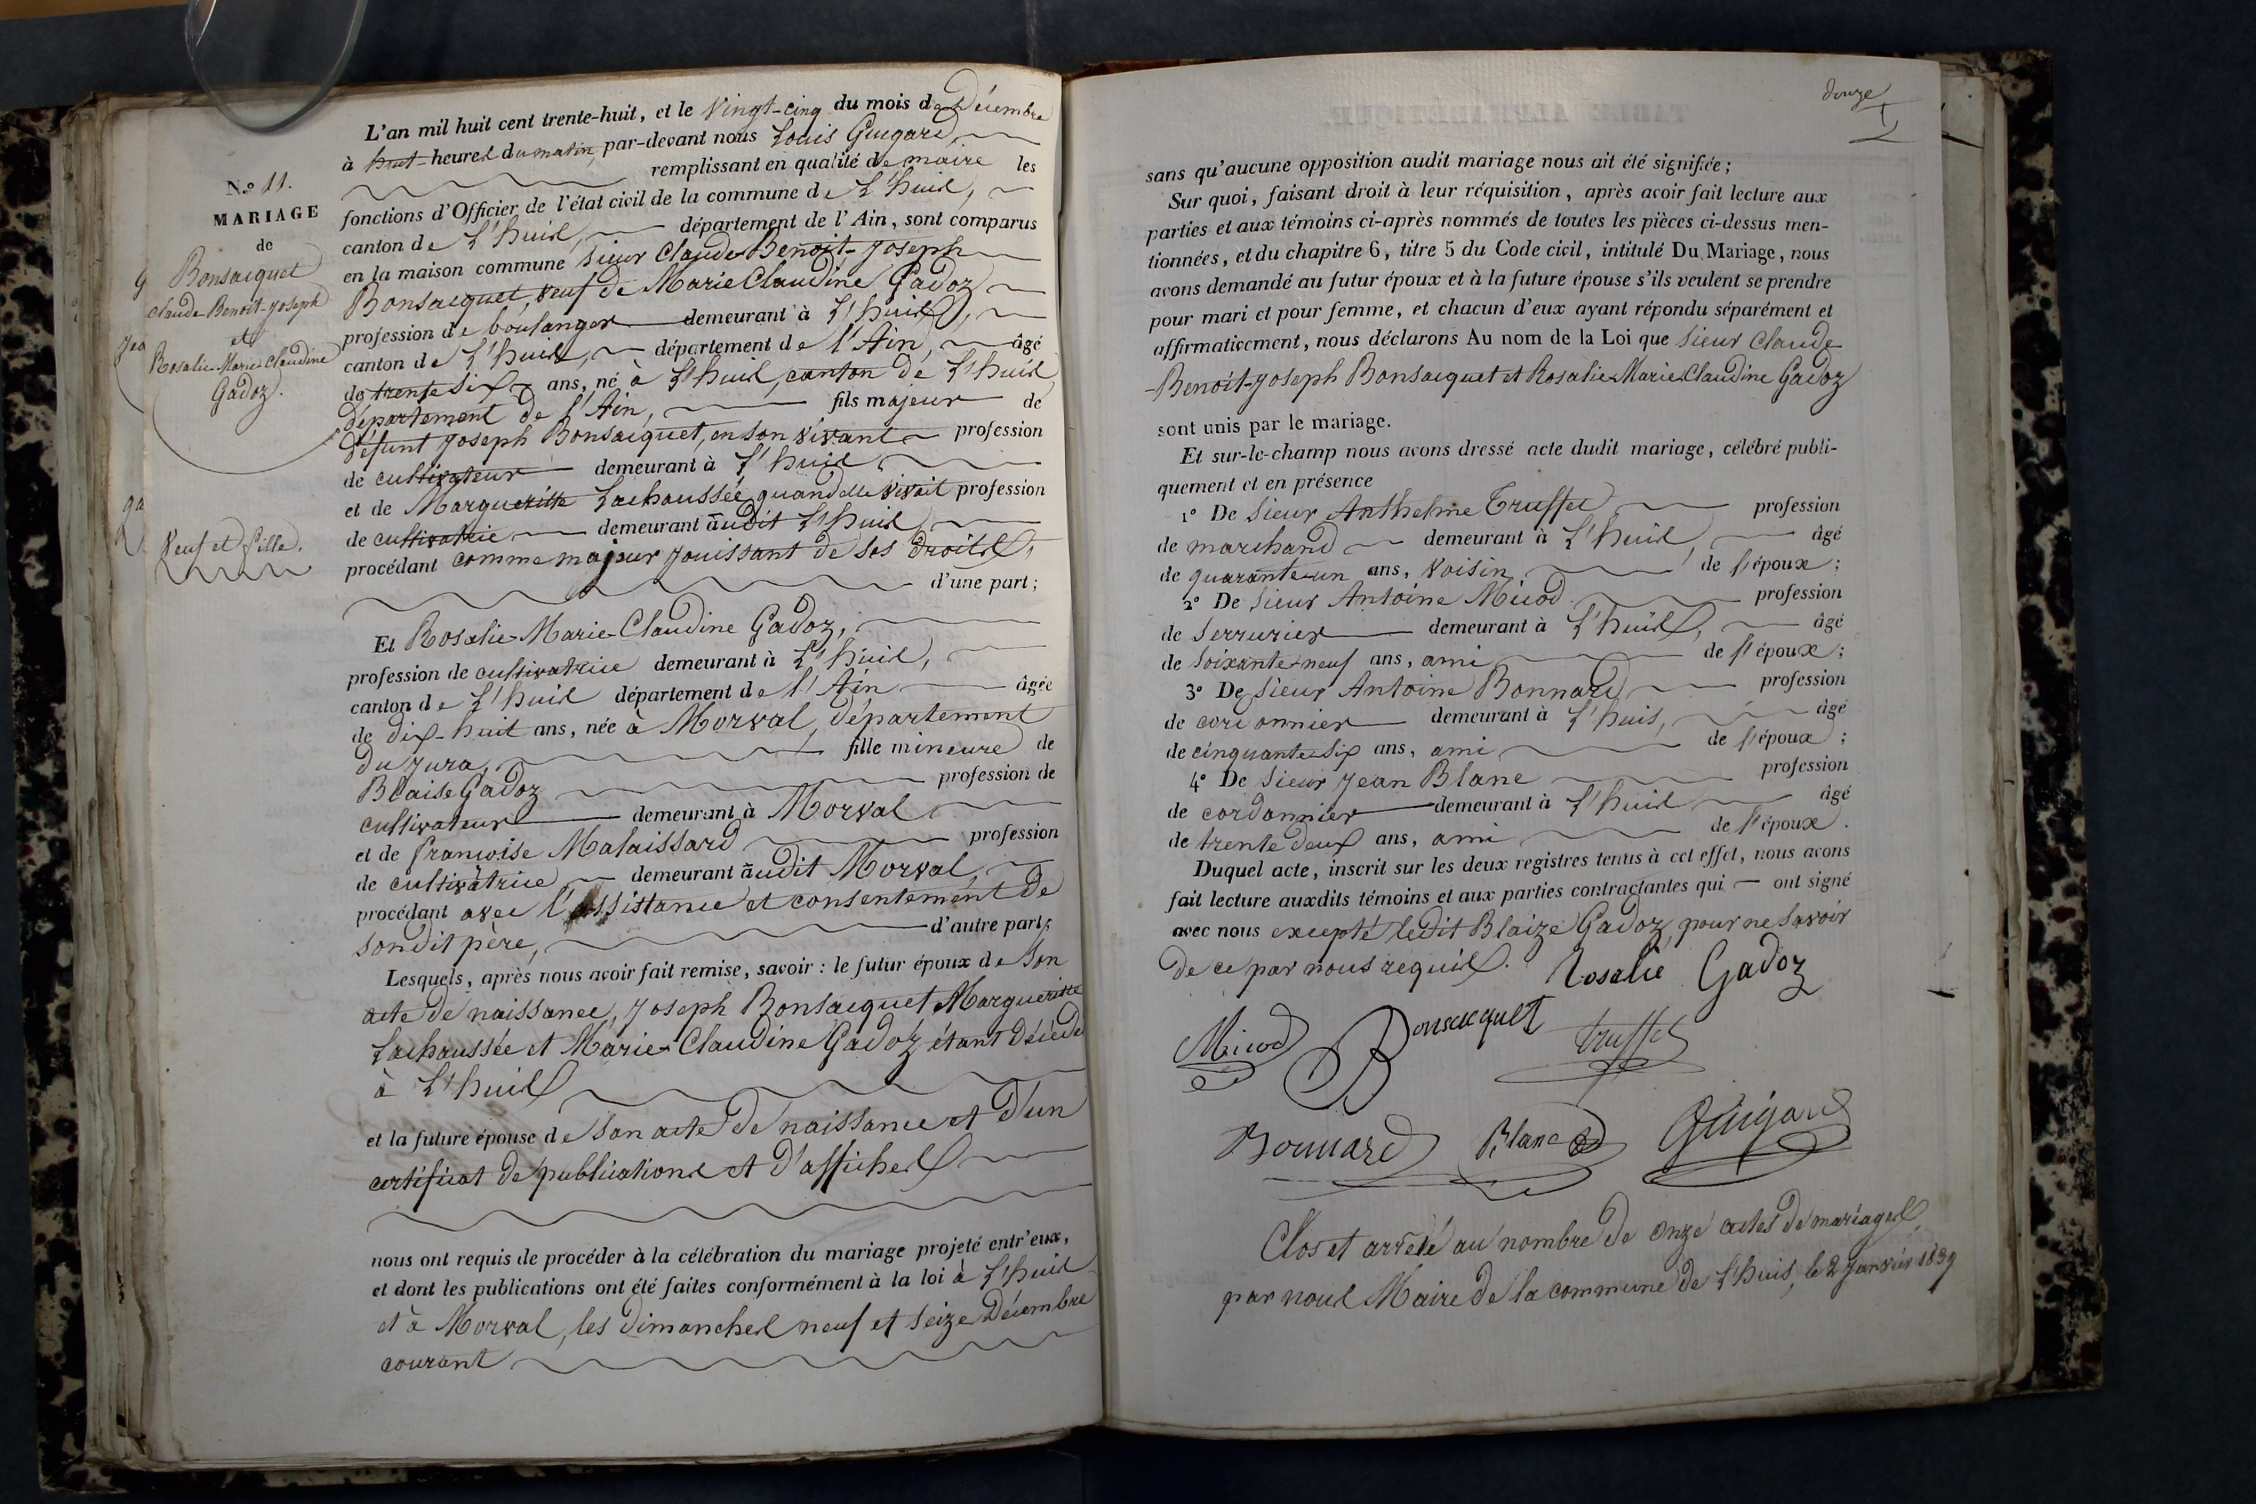 N.º 11.
MARIAGE
de
Bonsacquet
Claude-Benoit-Joseph
et
Rosalie-Marie-Claudine
Gadoz.
Veuf et fille.
L'an mil huit cent trente-huit, et le Vingt-cinq du mois de Décembre
à huit heures du matin, par-devant nous Louis Guigard
remplissant en qualité de maire les
fonctions d'Officier de l'état civil de la commune de L'huis,
canton de L'huis, département de l'Ain, sont comparus
en la maison commune Sieur Claude-Benoit-Joseph
Bonsacquet, veuf de Marie Claudine Gadoz
profession de boulanger demeurant à L'huis,
canton de L'huis, département de l'Ain, âgé
de trente six ans, né à L'huis, canton de L'huis
département de l'Ain, fils majeur de
défunt Joseph Bonsacquet, en son vivant profession
de cultivateur demeurant à L'huis
et de Margueritte Lachaussée quand elle vivait profession
de cultivatrice demeurant audit L'huis
procédant comme majeur jouissant de ses droits,
d'une part;
Et Rosalie-Marie-Claudine Gadoz,
profession de cultivatrice demeurant à L'huis,
canton de L'huis département de l'Ain âgée
de dix-huit ans, née à Morval, département
du Jura, fille mineure de
Blaise Gadoz profession de
cultivateur demeurant à Morval
et de françoise Malaissard profession
de cultivatrice demeurant audit Morval,
procédant avec l'assistance et consentement de
sondit père, d'autre part;
Lesquels, après nous avoir fait remise, savoir : le futur époux de son
acte de naissance, Joseph Bonsacquet Margueritte
Lachaussée et Marie-Claudine Gadoz étant décédé
à L'huis
et la future épouse de son acte de naissance et d'un
certificat de publications et d'affiches
nous ont requis de procéder à la célébration du mariage projeté entr'eux,
et dont les publications ont été faites conformément à la loi à L'huis
et à Morval, les dimanches neuf et seize Décembre
courant
douze
sans qu'aucune opposition audit mariage nous ait été signifiée;
Sur quoi, faisant droit à leur réquisition, après avoir fait lecture aux
parties et aux témoins ci-après nommés de toutes les pièces ci-dessus men-
tionnées, et du chapitre 6, titre 5 du Code civil, intitulé Du Mariage, nous
avons demandé au futur époux et à la future épouse s'ils veulent se prendre
pour mari et pour femme, et chacun d'eux ayant répondu séparément et
affirmativement, nous déclarons Au nom de la Loi que Sieur Claude
-Benoit-Joseph Bonsacquet et Rosalie-Marie-Claudine Gadoz
sont unis par le mariage.
Et sur-le-champ nous avons dressé acte dudit mariage, célébré publi-
quement et en présence
1º De Sieur Anthelme Truffet profession
de marchand demeurant à L'huis, âgé
de quarante-un ans, voisin de l'époux;
2º De Sieur Antoine Micod profession
de Serrurier demeurant à L'huis, âgé
de soixante-neuf ans, ami de l'époux;
3º De Sieur Antoine Bonnard profession
de cordonnier demeurant à L'huis, âgé
de cinquante-six ans, ami de l'époux;
4º De Sieur Jean Blanc profession
de cordonnier demeurant à L'huis âgé
de trente deux ans, ami de l'époux.
Duquel acte, inscrit sur les deux registres tenus à cet effet, nous avons
fait lecture auxdits témoins et aux parties contractantes qui ont signé
avec nous excepté ledit Blaize Gadoz, pour ne savoir
de ce par nous requis. Rosalie Gadoz
Micod Bonsacquet Truffet
Bonnard Blanc Guigard
Clos et arrêté au nombre de onze actes de mariages,
par nous Maire de la commune de L'huis, le 2 Janvier 1839